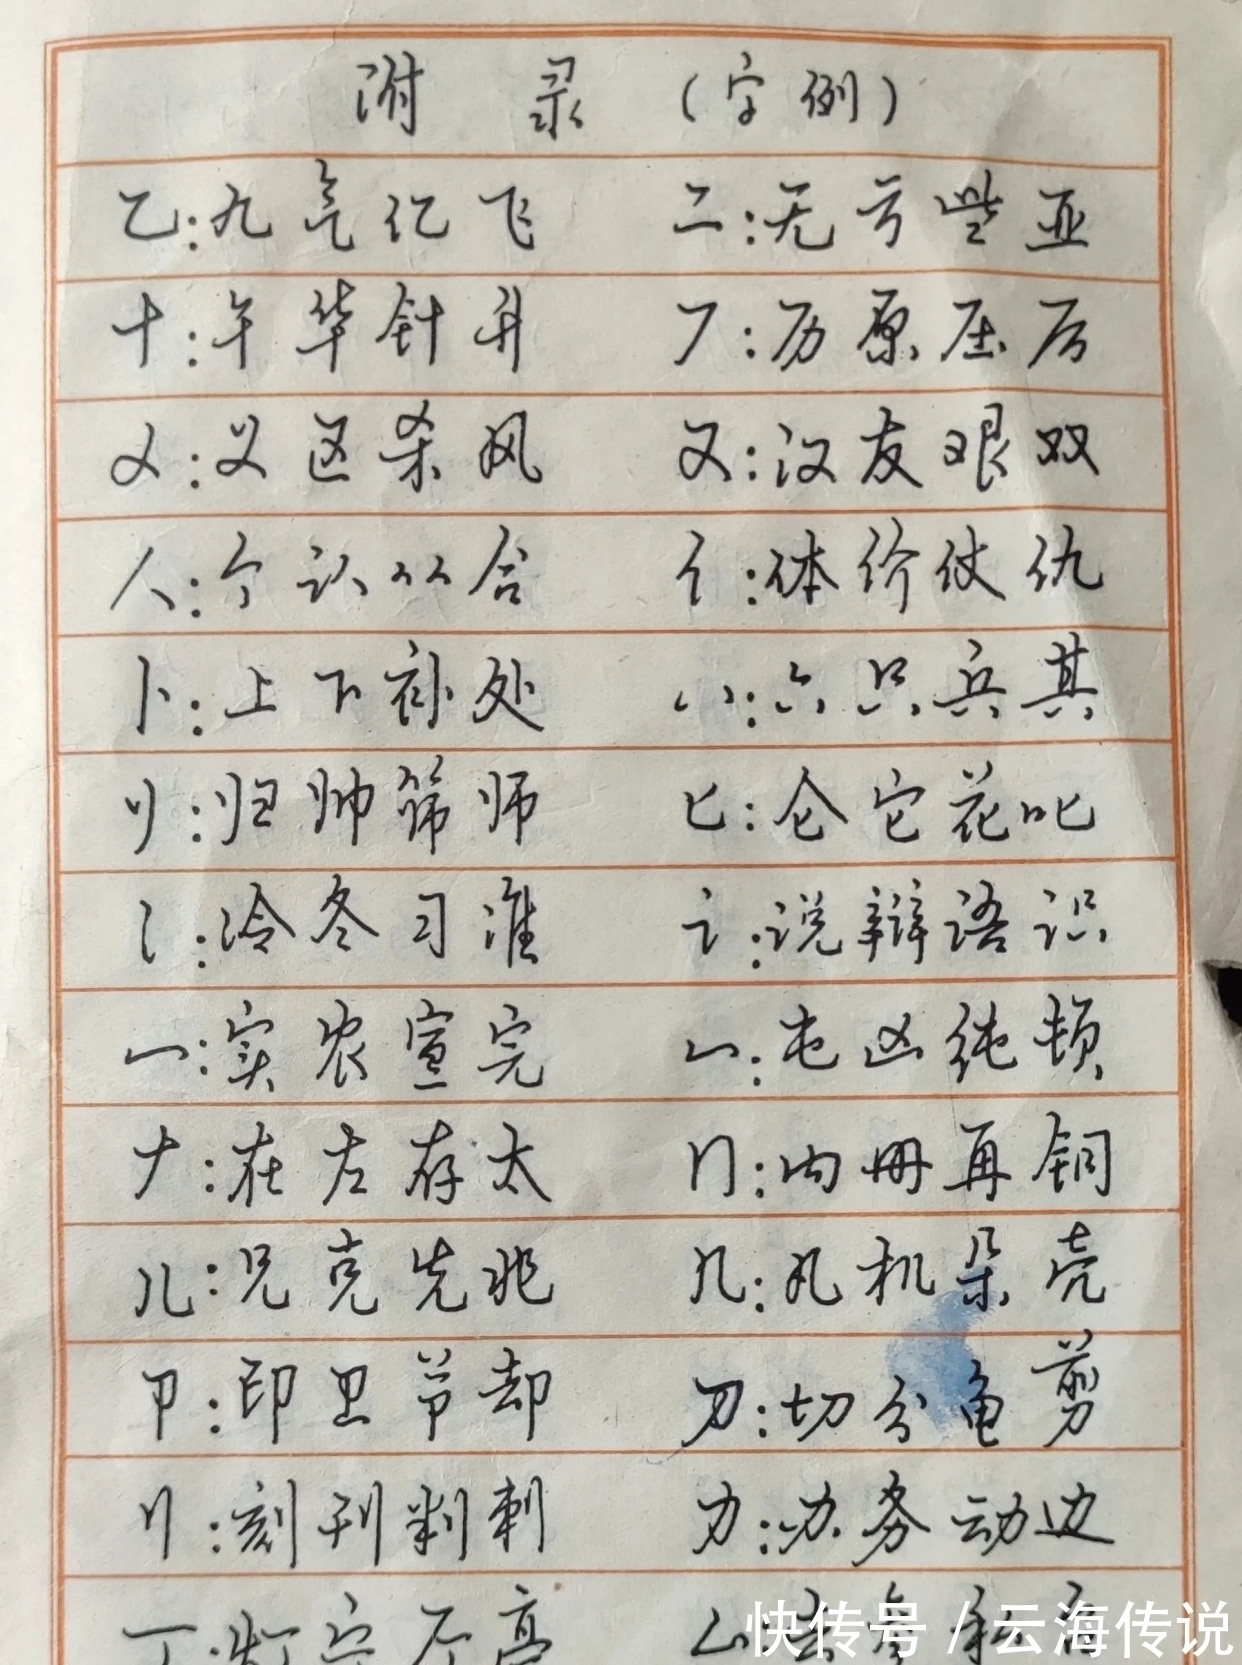 附 录 (字例)
乙:九气亿飞 二:无亏些亚
十:午华针升 厂:历原压后
㐅:义区杀风 又:汉友艰双
人:个认以合 亻:体价仗仇
卜:上下补处 八:六只兵其
刂:归帅筛师 匕:仑它花叱
冫:冷冬习准 讠:说辩语识
冖:实农宣完 凵:屯凶纯顿
𠂇:在左存太 冂:内册再铜
儿:兄克先兆 几:凡机朵壳
卩:印卫节却 刀:切分龟剪
刂:刻刊判刺 力:办务动边
丁:灯宁 亭 厶:去参私
快传号 / 云海传说